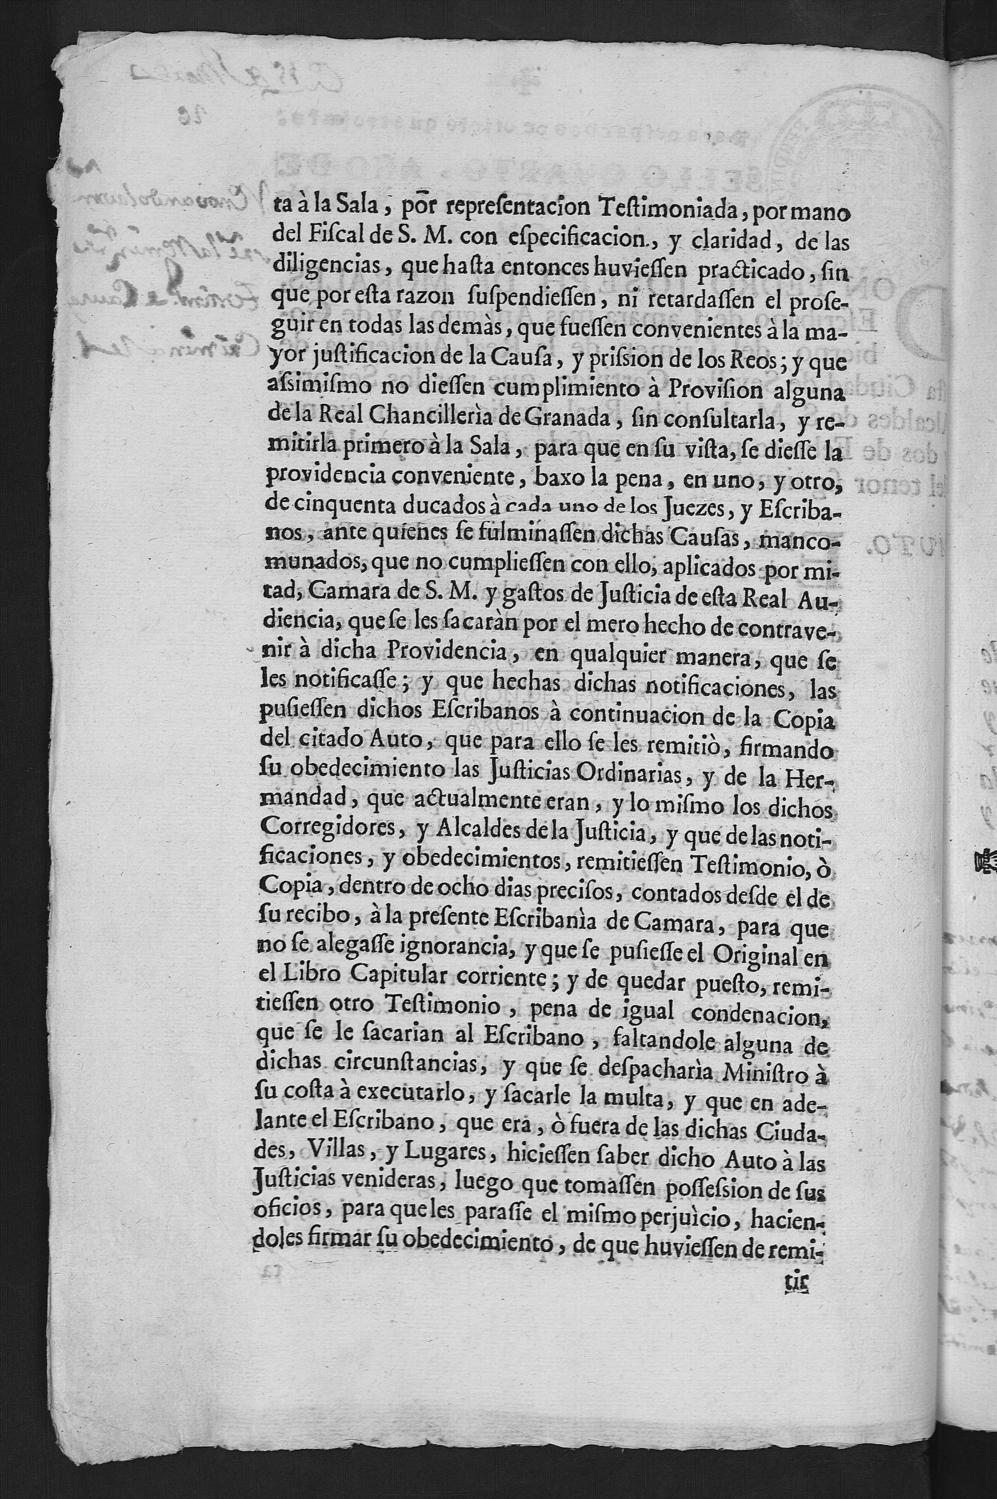 ta à la Sala, pōr repreſentacion Teſtimoniada, por mano
del Fiſcal de S. M. con eſpecificacion., y claridad, de las
diligencias, que haſta entonces huvieſſen practicado, ſin
que por eſta razon ſuſpendieſſen, ni retardaſſen el proſe-
guir en todas las demàs, que fueſſen convenientes à la ma-
yor juſtificacion de la Cauſa, y priſsion de los Reos; y que
aſsimiſmo no dieſſen cumplimiento à Proviſion alguna
de la Real Chancillerìa de Granada, ſin conſultarla, y re-
mitirla primero à la Sala, para que en ſu viſta, ſe dieſſe la
providencia conveniente, baxo la pena, en uno, y otro,
de cinquenta ducados à cada uno de los Juezes, y Eſcriba-
nos, ante quienes ſe fulminaſſen dichas Cauſas, manco-
munados, que no cumplieſſen con ello, aplicados por mi-
tad, Camara de S. M. y gaſtos de Juſticia de eſta Real Au-
diencia, que ſe les ſacaràn por el mero hecho de contrave-
nir à dicha Providencia, en qualquier manera, que ſe
les notificaſſe; y que hechas dichas notificaciones, las
puſieſſen dichos Eſcribanos à continuacion de la Copia
del citado Auto, que para ello ſe les remitiò, firmando
ſu obedecimiento las Juſticias Ordinarias, y de la Her-
mandad, que actualmente eran, y lo miſmo los dichos
Corregidores, y Alcaldes de la Juſticia, y que de las noti-
ficaciones, y obedecimientos, remitieſſen Teſtimonio, ò
Copia, dentro de ocho dias preciſos, contados deſde el de
ſu recibo, à la preſente Eſcribanìa de Camara, para que
no ſe alegaſſe ignorancia, y que ſe puſieſſe el Original en
el Libro Capitular corriente; y de quedar pueſto, remi-
tieſſen otro Teſtimonio, pena de igual condenacion,
que ſe le ſacarian al Eſcribano, faltandole alguna de
dichas circunſtancias, y que ſe deſpacharìa Miniſtro à
ſu coſta à executarlo, y ſacarle la multa, y que en ade-
lante el Eſcribano, que era, ò fuera de las dichas Ciuda-
des, Villas, y Lugares, hicieſſen ſaber dicho Auto à las
Juſticias venideras, luego que tomaſſen poſſeſsion de ſus
oficios, para que les paraſſe el miſmo perjuìcio, hacien-
doles firmar ſu obedecimiento, de que huvieſſen de remi-
tir